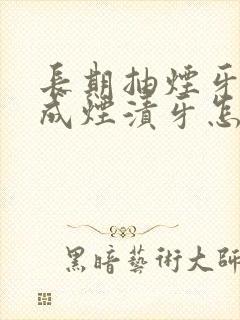 長期抽煙牙
成煙漬牙怎
黑暗藝術大師